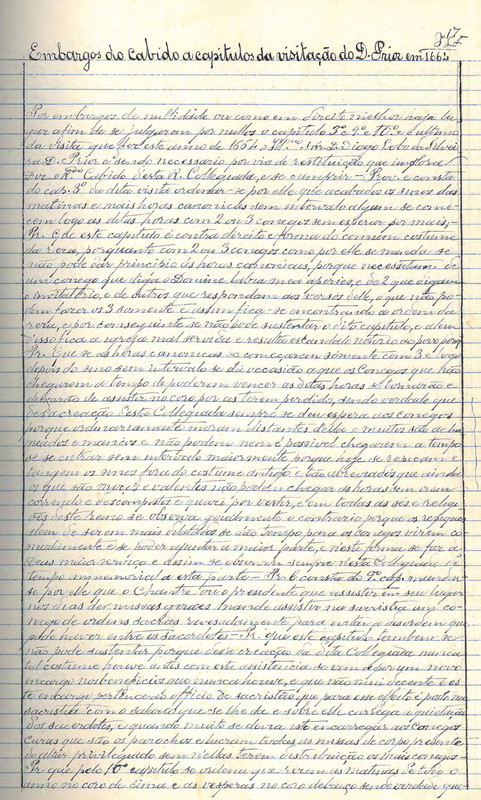 217
Embargos do Cabido a capitulos da visitação do D. Prior em 1664
Por embargos de nullidade ou como em direito melhor haja lu-
gar afim de se julgarem por nullos o capitulo 3º 9º e 10º e ultimo
da visita que fez este anno de 1664 o Snr. D. Diogo Lobo da Silvei-
ra D. Prior e sendo necessario por via de restituição que implora
diz o Rdo Cabido desta R. Collegiada, e se cumprir — Prov. e consta
do cap. 3º da dita visita ordenar-se por elle que acabados os sinos das
matinas e mais horas canonicas sem intervalo algum se come-
cem logo as ditas horas com 2 ou 3 conegos sem esperar por mais,—
Pr. q̃ este capitulo é contra direito e forma do comum costume
da reza, porquanto com 2 ou 3 conegos como por elle se manda se
não pode dar principio ás horas canonicas, porque necessitam de
um conego que diga o Domine labia mea aperies, e de 2 que digam
o invitatorio, e de outros que respondam aos versos delle, o que não po-
dem fazer os 3 somente e assim fica-se encontrando a ordem da
reza, e por conseguinte se não pode sustentar o dito capitulo, e alem
disso fica a igreja mal servida e resulta escandalo notorio ao povo pois
Pr. Que se as horas canonicas se começarem sómente com 3 e logo
depois do sino sem intervalo se dá occasião a que os Conegos que não
chegarem a tempo de poderem vencer as ditas horas se tornarão e
deixarão de assistir no coro por as terem perdido, sendo verdade que
desda creação desta Collegiada sempre se deu espera aos conegos
porque ordinariamente moram distantes della e muitos são
e não podem nem é possivel chegarem a tempo
se se entrar sem intervalo maiormente porque hoje se repicam e
tangem os sinos fora do costume antigo e tão abreviados que ainda
os que são moços e valentes não podem chegar ás horas sem virem
correndo e descompostos e quasi por vestir, e em todas as sés e religi-
ões deste reino se observa geralmente o contrario porque os repiques
alem de serem mais dilatados se dão tempo para os conegos virem co-
modamente e se poder ajuntar a maior parte, e nesta forma se faz a
Deus maior serviço e assim se observou sempre nesta Collegiada de
tempo immemorial a esta parte — Pr. q̃ consta do 9º cap. mandar-
se por elle que o Chantre ou o presidente que assistir em seu lugar
nos dias das missas geraes mande assistir na sacristia um co-
nego de ordens sacras revezadamente para evitar a desordem que
pode haver entre os sacerdotes — Pr. que este capitulo tambem se
não pode sustentar porque desda creação da dita Collegiada nunca
tal costume houve antes com esta assistencia se vem a por um novo
encargo nos beneficios que nunca houve, e que não mui decente e es-
te encargo pertence ao officio de sacristão que para esse effeito é posto na
sacristia com o salario que se lhe dá e sobre elle carrega a quietação
dos sacerdotes, e quando muito se devia isto encarregar aos Conegos
Curas que são os parochos e lucram todas as missas de corpo presente
do altar privilegiado sem nellas terem distribuição os mais conegos —
Pr. que pelo 10º capitulo se ordena que rezem as matinas todo o
anno no coro de cima e as vesperas no coro debaixo sendo verdade que